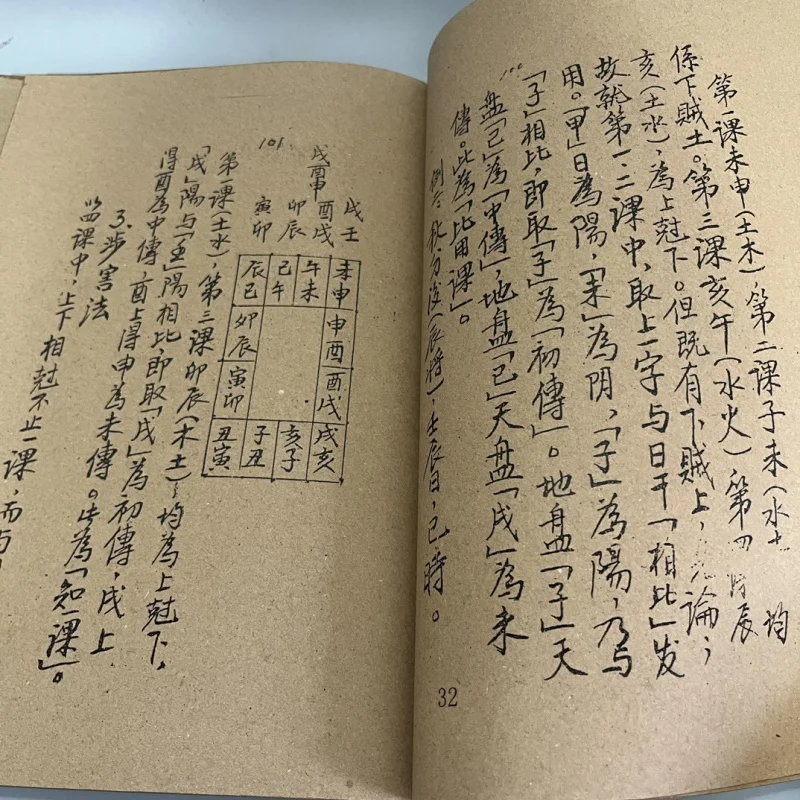 100
第一课未申(土木)、第二课子未(水土)均
係下贼上。第三课亥午(水火)第四
亥(土水)，为上尅下。但既有下贼上，論；
故就第一、二课中，取上一字与日干「相比」发
用。「甲」日為陽，「未」為阴，「子」為陽，乃与
「子」相比，即取「子」為「初傳」。地盘「子」天
盘「己」為「中傳」，地盘「己」天盘「戌」為末
傳。此為「比用课」。
例六 秋分後(辰將)，壬辰日，己時。
32
101
戌壬
酉戌
卯辰
寅卯
戌酉申
未申
午未
己午
辰己
申酉
卯辰
酉戌
寅卯
戌亥
亥子
子丑
丑寅
第一课(土水)，第三课卯辰(木土)，均為上尅下，
「戌」陽与「壬」陽相比，即取「戌」為初傳，戌上
得酉為中傳，酉上得申為末傳。此為「知一课」。
3、涉害法
以四课中，上下相尅不止一课，而与